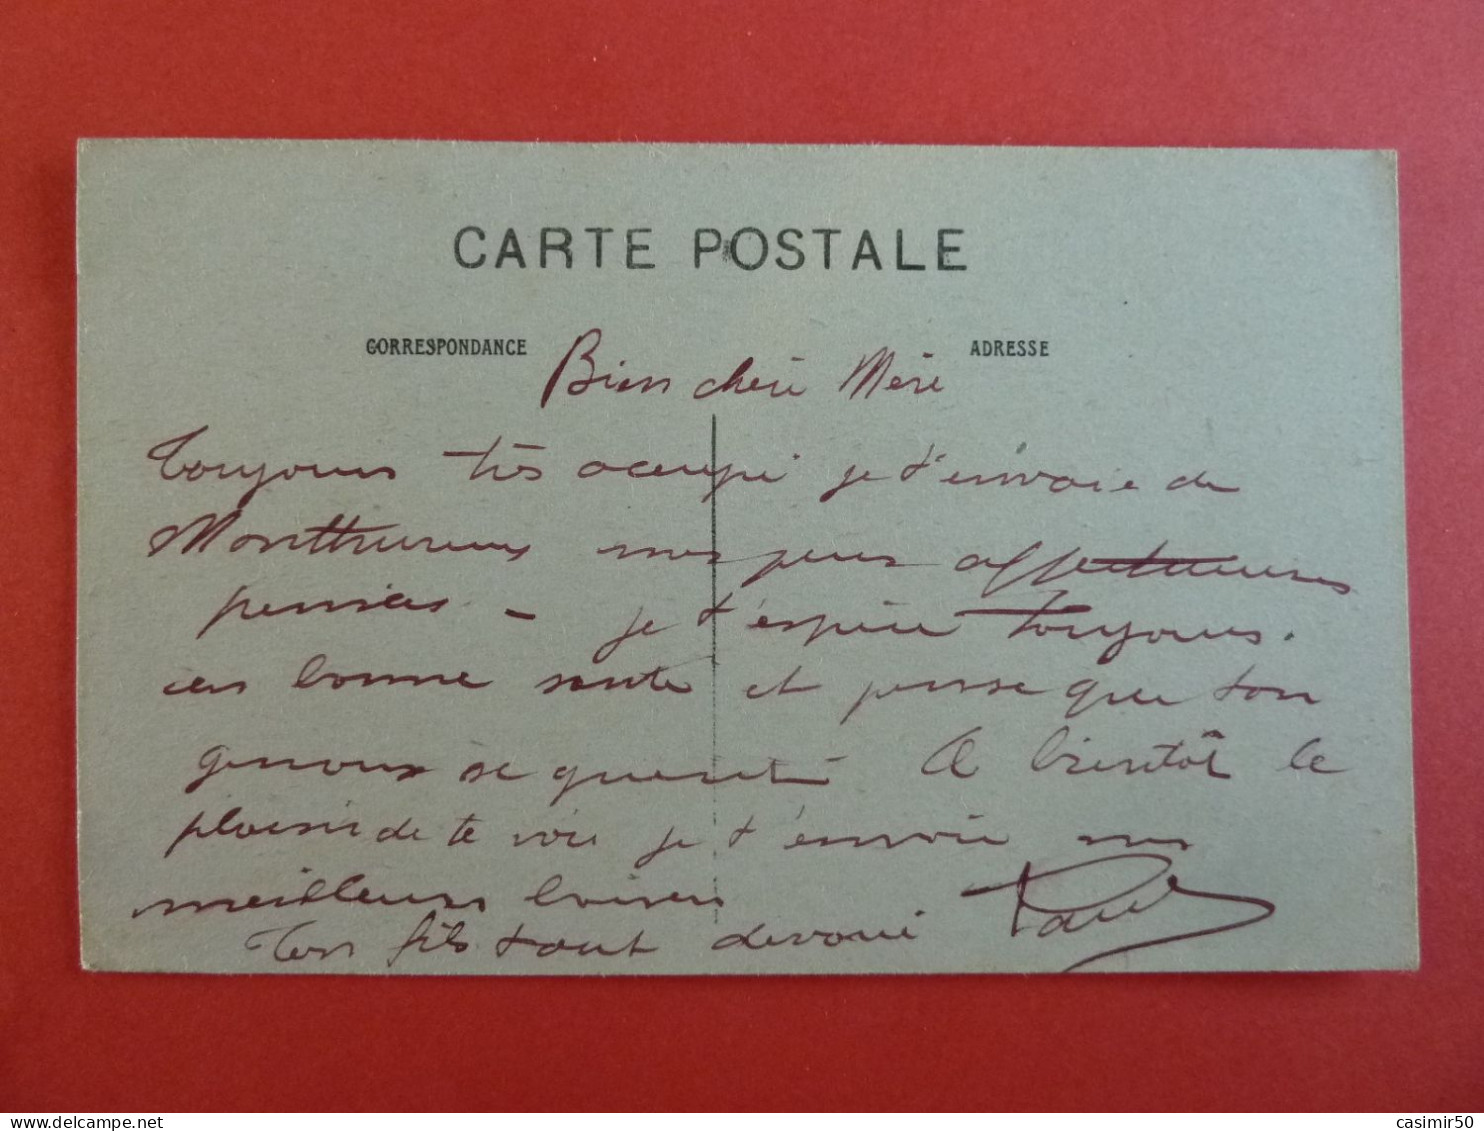 CARTE POSTALE
CORRESPONDANCE
ADRESSE
Bien chère Mère
Toujours très occupé je t'envoie de
Monthureux mes plus affectueuses
pensées - je t'espère toujours
en bonne santé et pense que ton
genoux se guérit A bientôt le
plaisir de te voir je t'envoie mes
meilleurs baisers
Ton fils tout dévoué Paul
casimir50